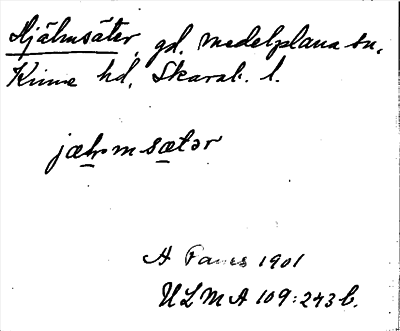 Hjälmsäter, gd. Medelplana sn,
Kinne hd, Skarab. l.
jælmsætər
A Fares 1901
ULMA 109:243b.